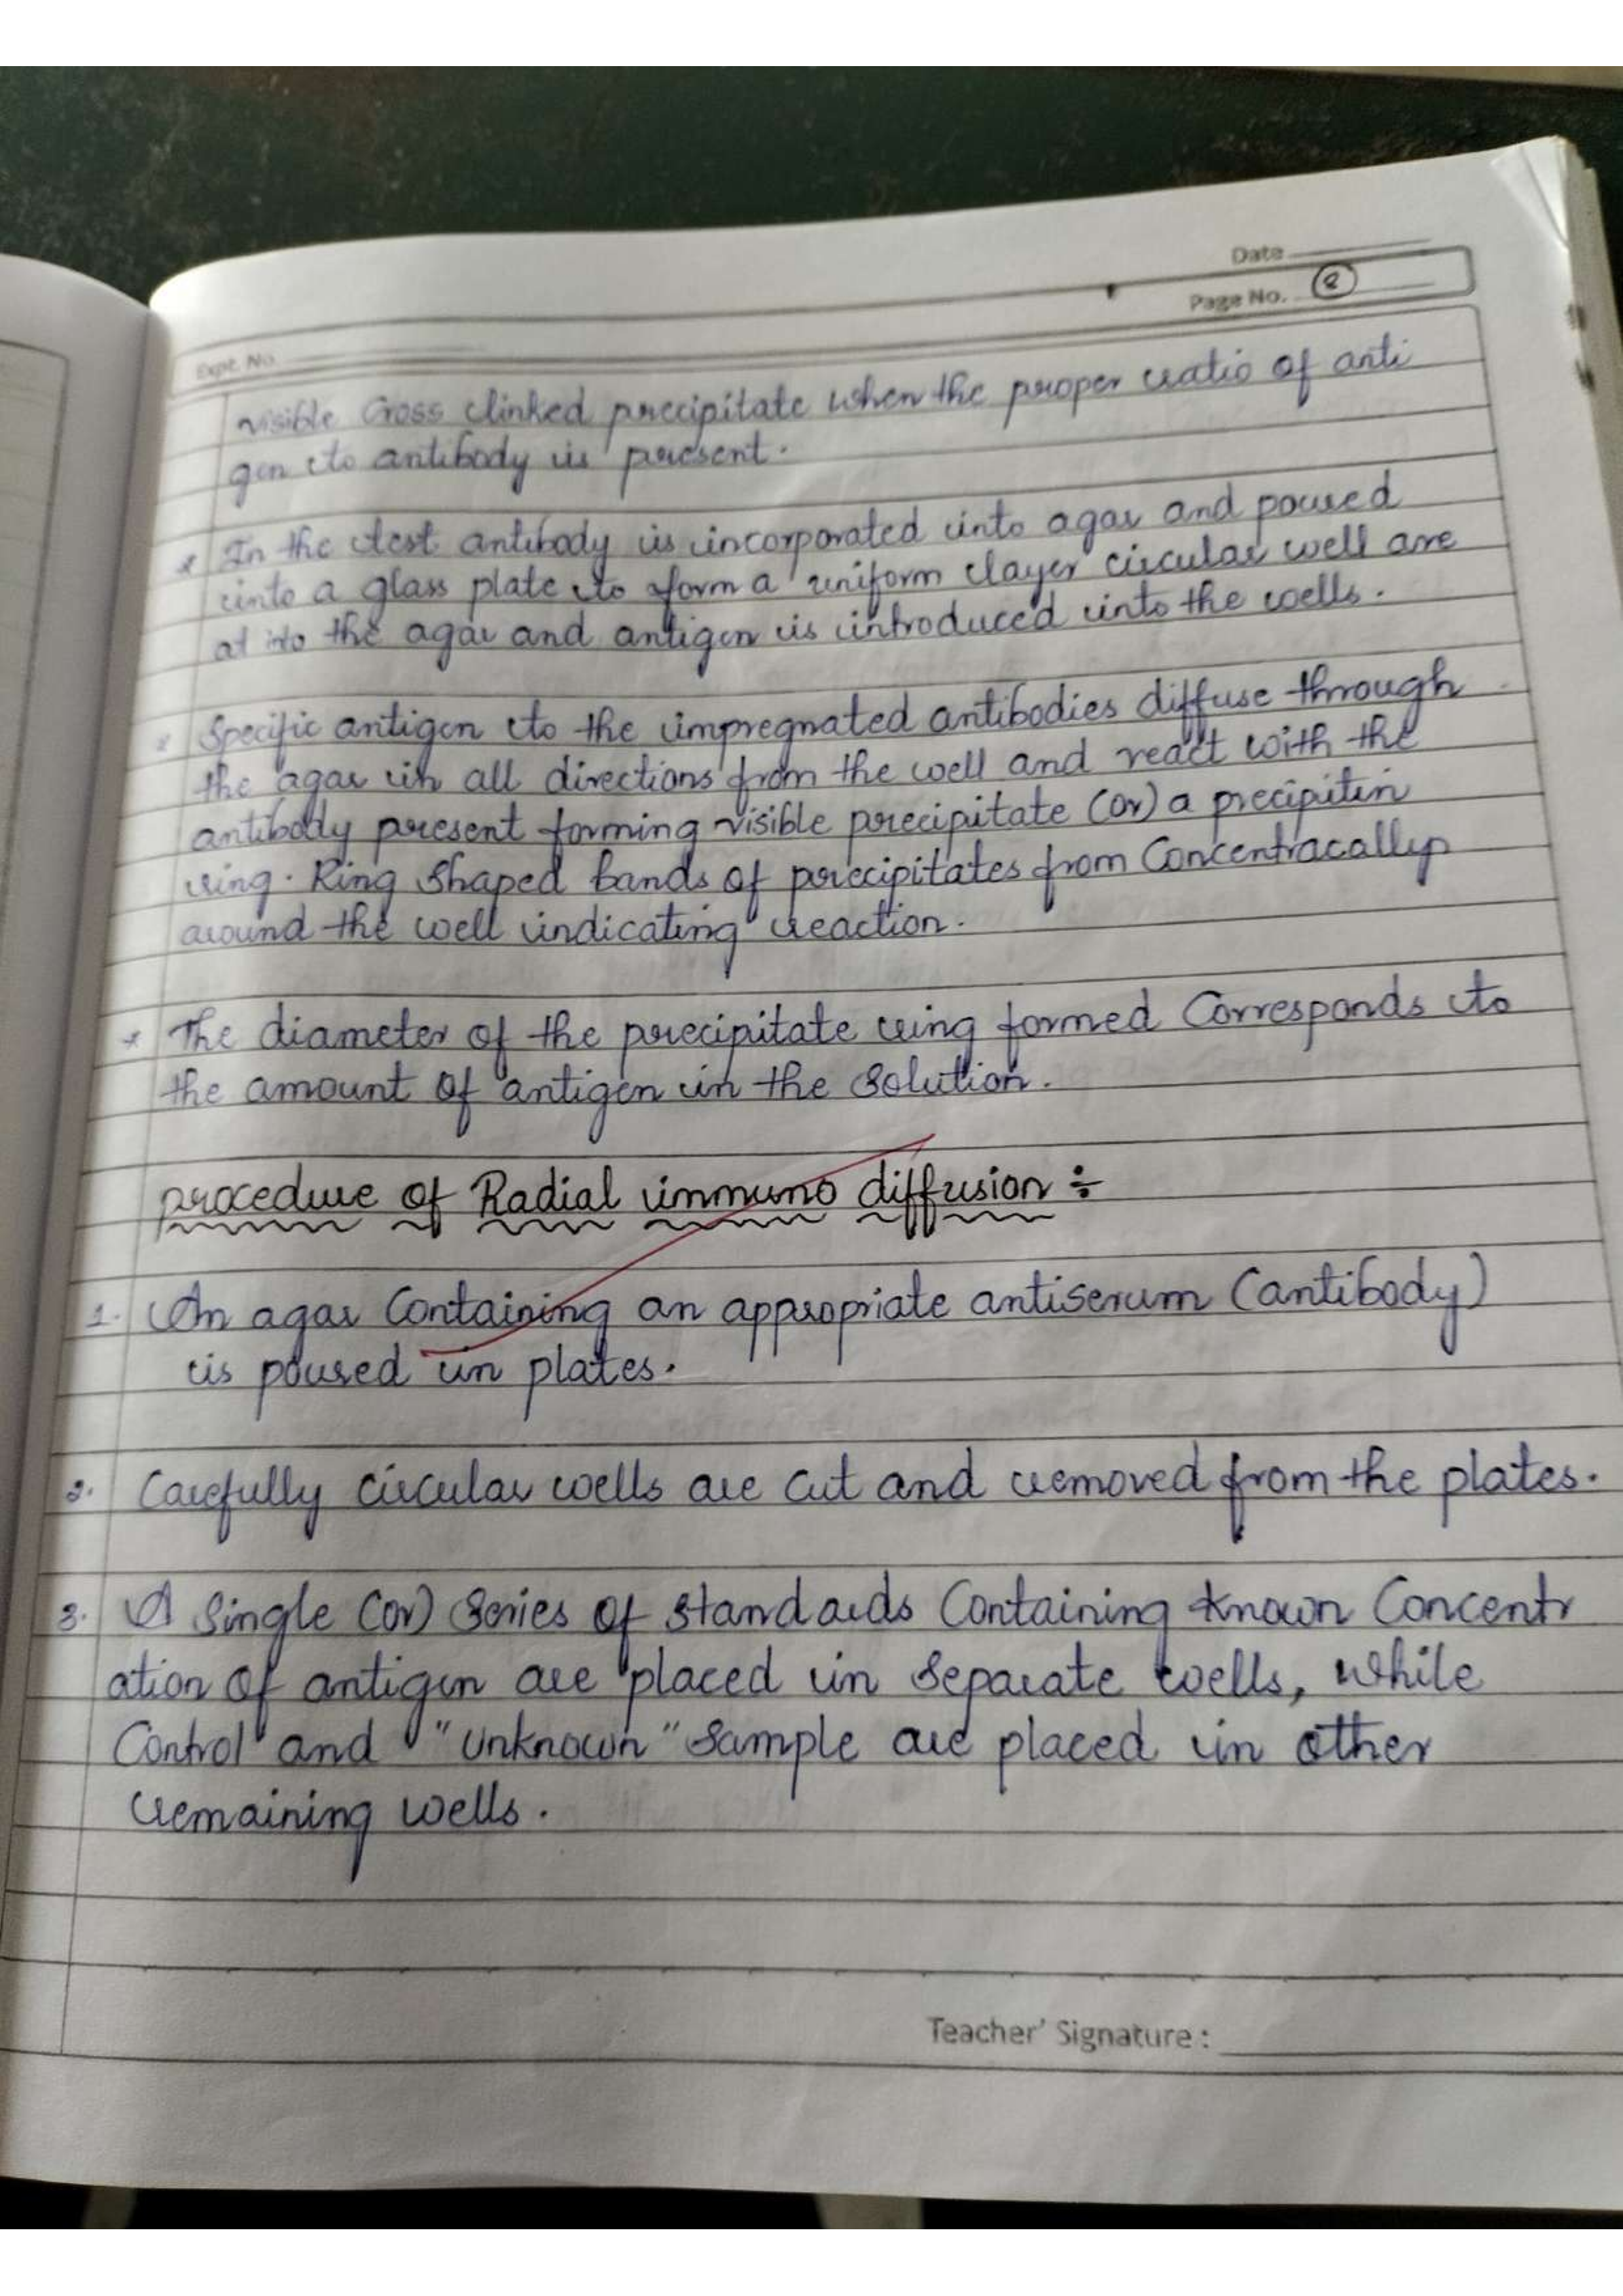 Date
Page No. 8
Expt. No.
visible Cross linked precipitate when the proper ratio of anti
gen to antibody is present.
* In the test antibody is incorporated into agar and poured
into a glass plate to form a uniform layer circular well are
at into the agar and antigen is introduced into the wells.
* Specific antigen to the impregnated antibodies diffuse through
the agar in all directions from the well and react with the
antibody present forming visible precipitate (or) a precipitin
ring. Ring Shaped bands of precipitates from Concentracally
around the well indicating reaction.
* The diameter of the precipitate ring formed Corresponds to
the amount of antigen in the Solution.
procedure of Radial immuno diffusion ÷
1. An agar Containing an appropriate antiserum (antibody)
is poured in plates.
2. Carefully circular wells are cut and removed from the plates.
3. A Single (or) Series of standards Containing known Concentr
ation of antigen are placed in separate wells, while
Control and "unknown" Sample are placed in other
remaining wells.
Teacher' Signature :